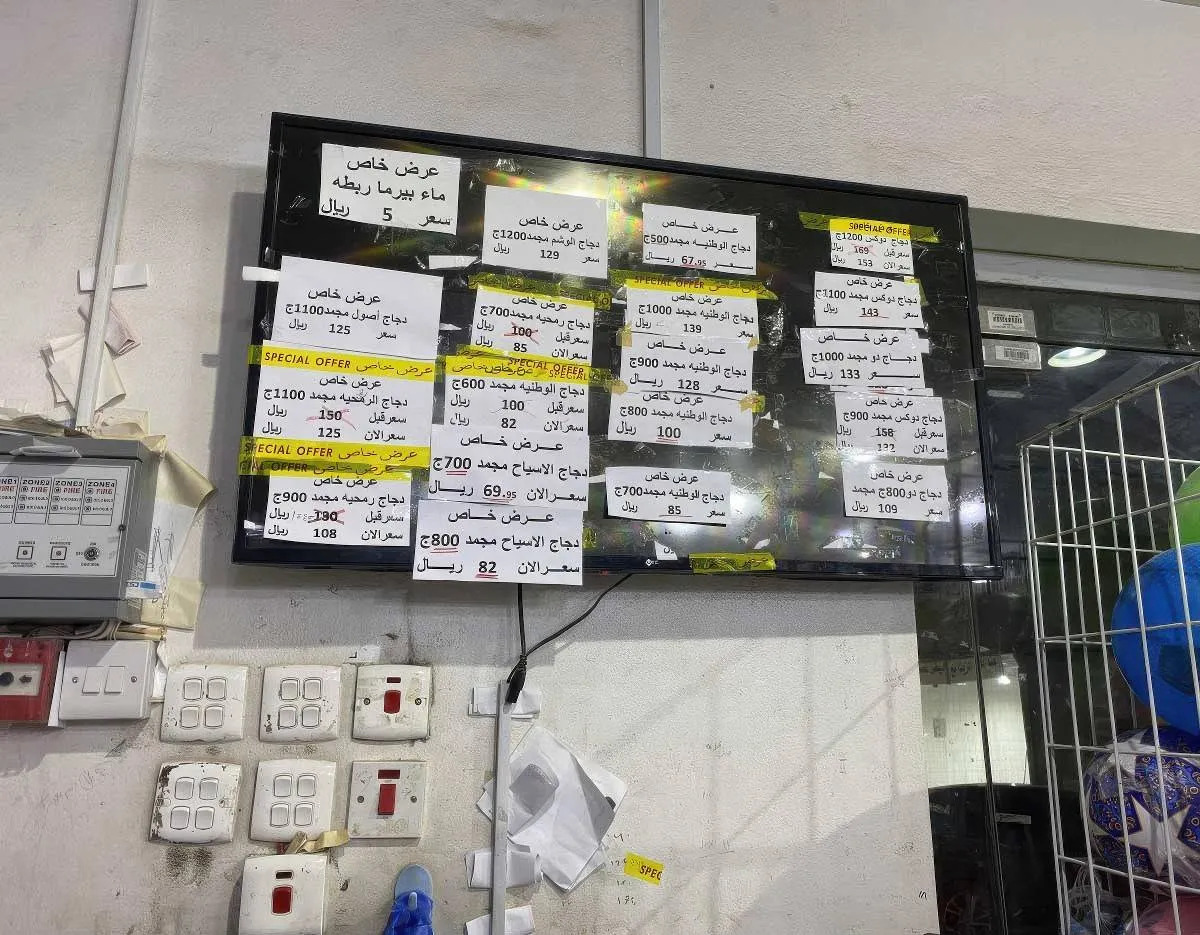 عرض خاص
ماء بيرما ربطه
سعر 5 ريال
عرض خاص
دجاج اصول مجمد1100ج
سعر 125
SPECIAL OFFER عرض خاص
عرض خاص
دجاج الرمحيه مجمد 1100ج
سعرقبل 150 ريال
سعرالان 125 ريال
SPECIAL OFFER عرض خاص
OFFER عرض خاص
عرض خاص
دجاج رمحيه مجمد 900ج
سعرقبل 130 ريال
سعرالان 108 ريال
عرض خاص
دجاج الوشم مجمد1200ج
سعر 129 ريال
عرض خاص
دجاج رمحيه مجمد700ج
سعرقبل 100 ريال
سعرالان 85 ريال
SPECIAL OFFER
عرض خاص SPECIAL
دجاج الوطنيه مجمد 600ج
سعرقبل 100 ريال
سعرالان 82 ريال
عرض خاص
دجاج الاسياح مجمد 700ج
سعرالان 69.95 ريال
عرض خاص
دجاج الاسياح مجمد 800ج
سعرالان 82 ريال
عرض خاص
دجاج الوطنيه مجمد500ج
سعر 67.95 ريال
SPECIAL OFFER عرض خاص
عرض خاص
دجاج الوطنيه مجمد 1000ج
139 ريال
عرض خاص
دجاج الوطنيه مجمد 900ج
سعر 128 ريال
عرض خاص
دجاج الوطنيه مجمد 800ج
سعر 100 ريال
عرض خاص
دجاج الوطنيه مجمد700ج
سعر 85 ريال
عرض SPECIAL OFFER
دجاج دوكس 1200ج
سعرقبل 169 ريال
سعرالان 153 ريال
عرض خاص
دجاج دوكس مجمد 1100ج
سعر 143 ريال
عرض خاص
دجاج دو مجمد 1000ج
سعر 133 ريال
عرض خاص
دجاج دوكس مجمد 900ج
سعرقبل 158 ريال
سعرالان 132 ريال
عرض خاص
دجاج دو800ج مجمد
سعر 109 ريال
ZONE2 ZONE3 ZONE4
FIRE FIRE FIRE
SPEC